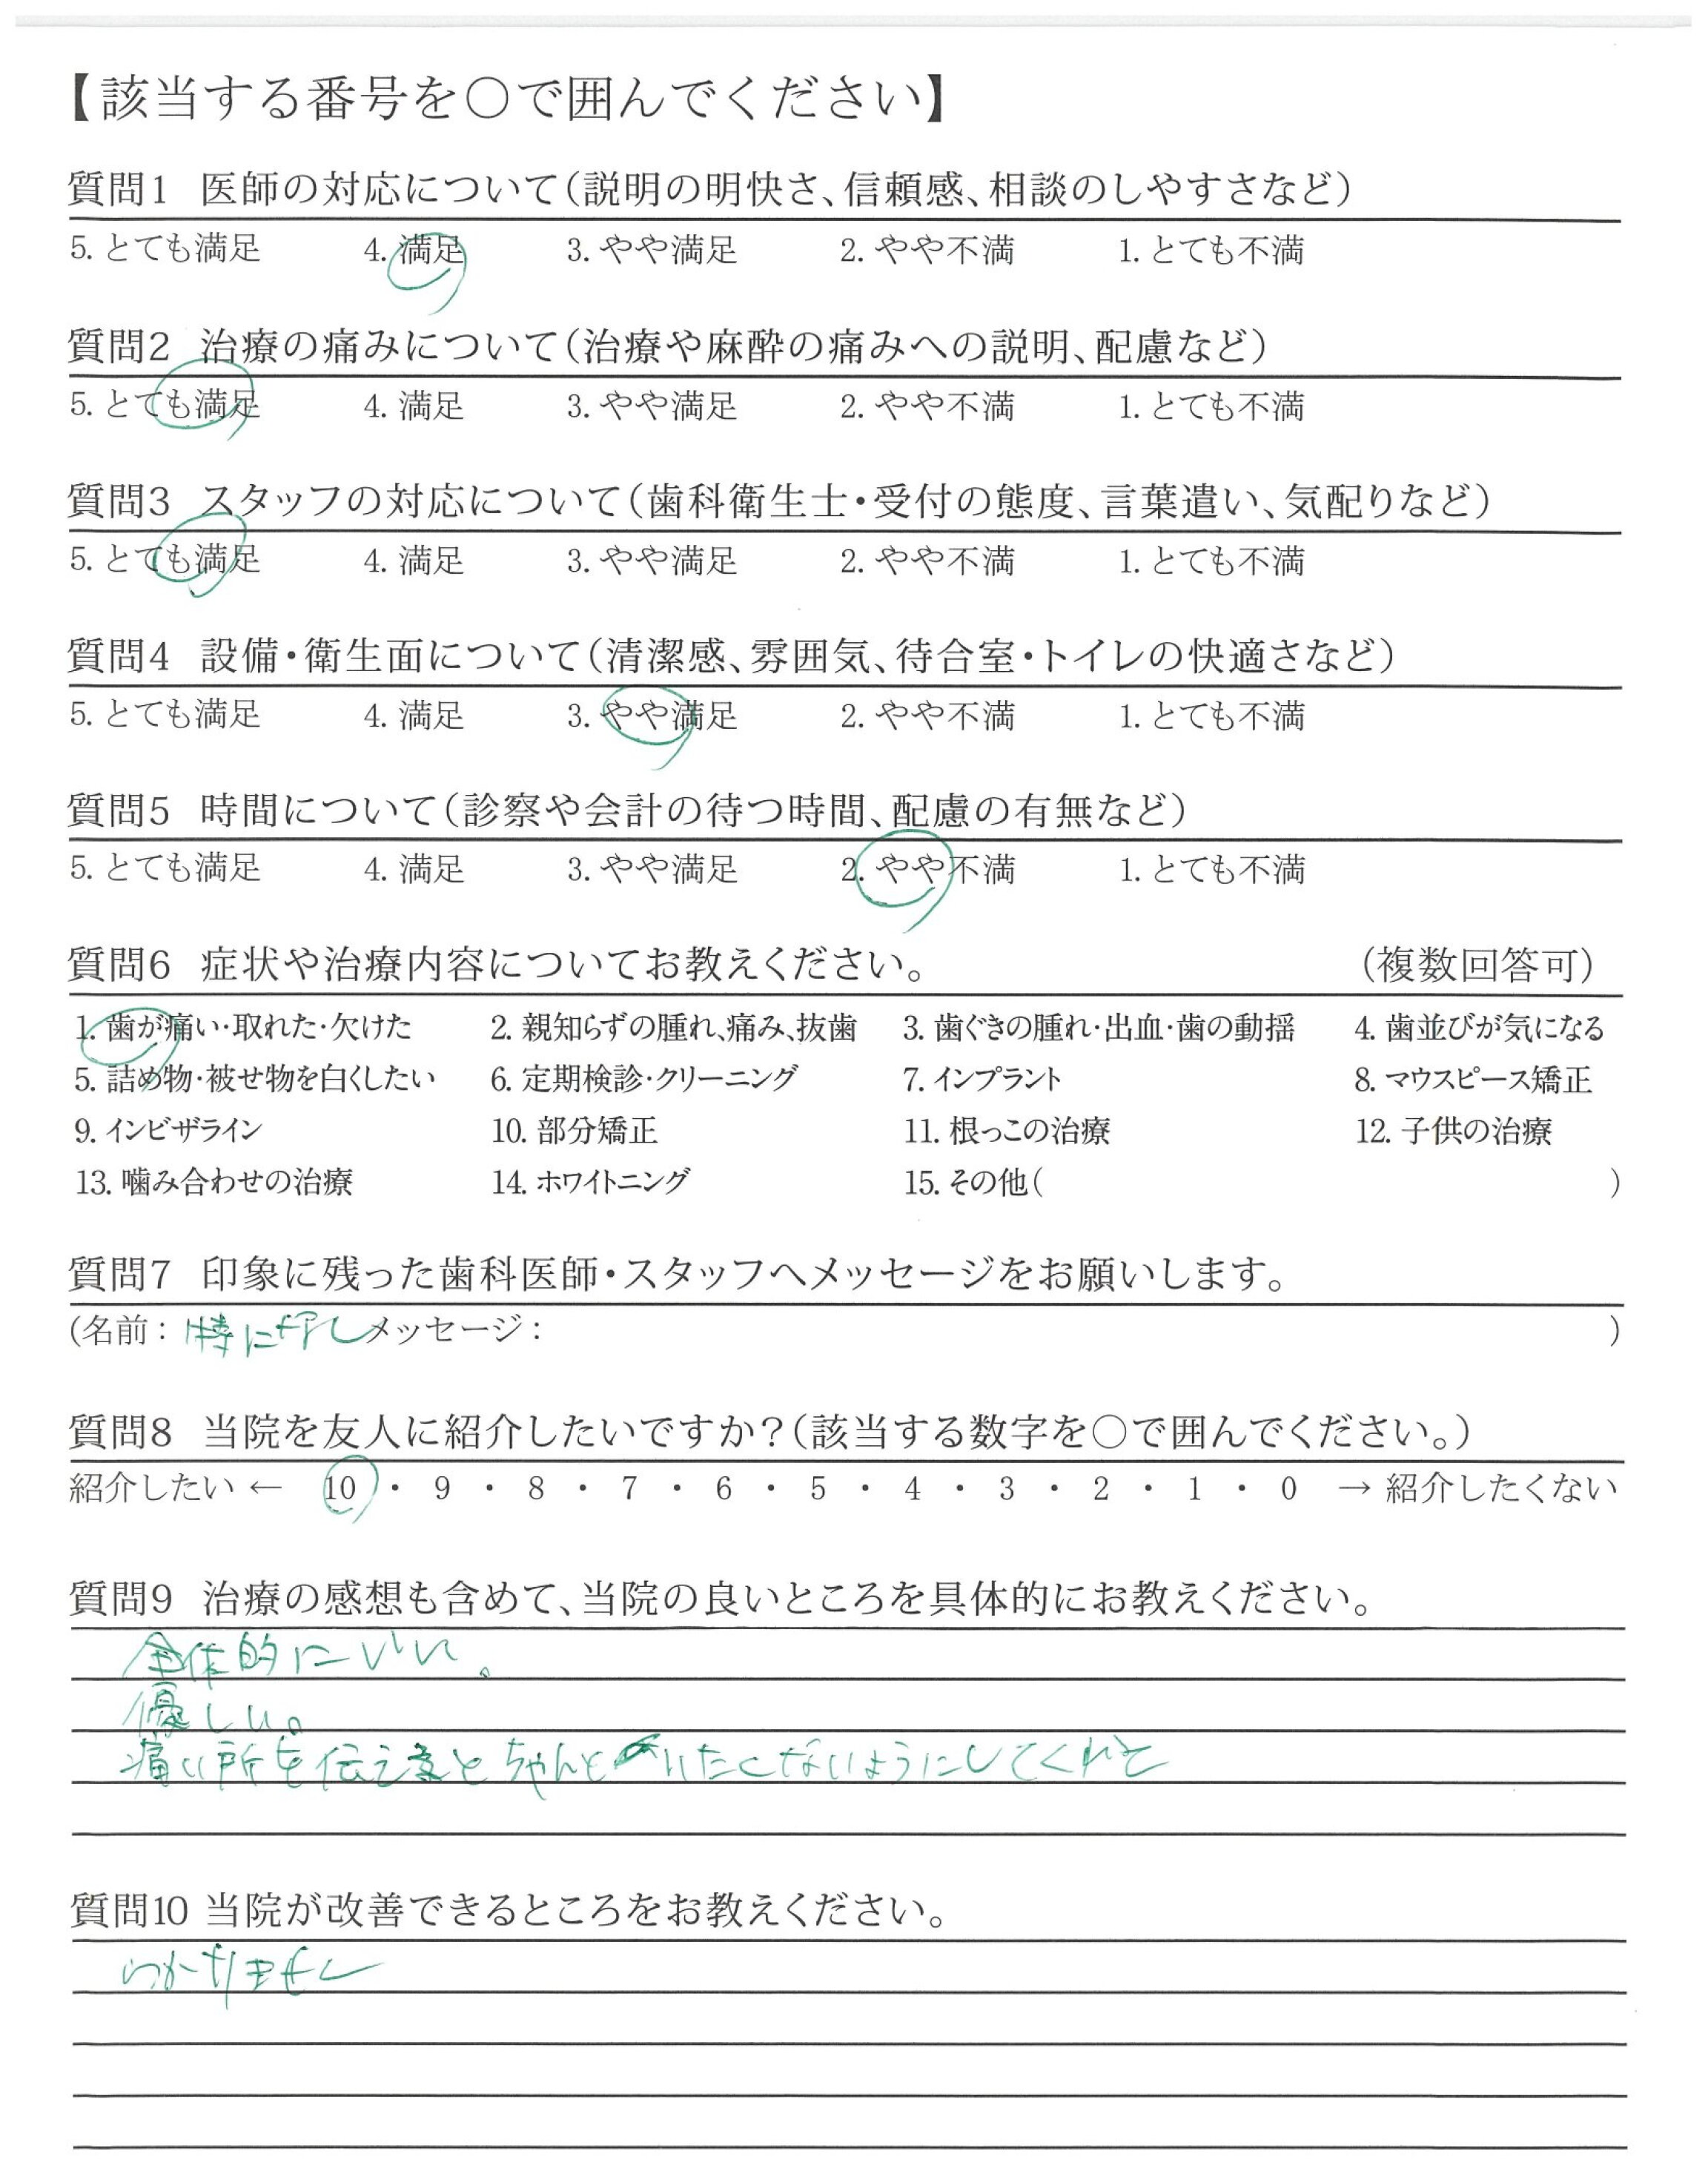 【該当する番号を○で囲んでください】
質問1 医師の対応について(説明の明快さ、信頼感、相談のしやすさなど)
5. とても満足 4. 満足 3. やや満足 2. やや不満 1. とても不満
質問2 治療の痛みについて(治療や麻酔の痛みへの説明、配慮など)
5. とても満足 4. 満足 3. やや満足 2. やや不満 1. とても不満
質問3 スタッフの対応について(歯科衛生士・受付の態度、言葉遣い、気配りなど)
5. とても満足 4. 満足 3. やや満足 2. やや不満 1. とても不満
質問4 設備・衛生面について(清潔感、雰囲気、待合室・トイレの快適さなど)
5. とても満足 4. 満足 3. やや満足 2. やや不満 1. とても不満
質問5 時間について(診察や会計の待つ時間、配慮の有無など)
5. とても満足 4. 満足 3. やや満足 2. やや不満 1. とても不満
質問6 症状や治療内容についてお教えください。 (複数回答可)
1. 歯が痛い・取れた・欠けた 2. 親知らずの腫れ、痛み、抜歯 3. 歯ぐきの腫れ・出血・歯の動揺 4. 歯並びが気になる
5. 詰め物・被せ物を白くしたい 6. 定期検診・クリーニング 7. インプラント 8. マウスピース矯正
9. インビザライン 10. 部分矯正 11. 根っこの治療 12. 子供の治療
13. 噛み合わせの治療 14. ホワイトニング 15. その他( )
質問7 印象に残った歯科医師・スタッフへメッセージをお願いします。
(名前: 特になし メッセージ: )
質問8 当院を友人に紹介したいですか?(該当する数字を○で囲んでください。)
紹介したい ← 10 ・ 9 ・ 8 ・ 7 ・ 6 ・ 5 ・ 4 ・ 3 ・ 2 ・ 1 ・ 0 → 紹介したくない
質問9 治療の感想も含めて、当院の良いところを具体的にお教えください。
全体的にいい。
優しい。
痛い所を伝えると ちゃんと いたくないようにしてくれた
質問10 当院が改善できるところをお教えください。
わかりません